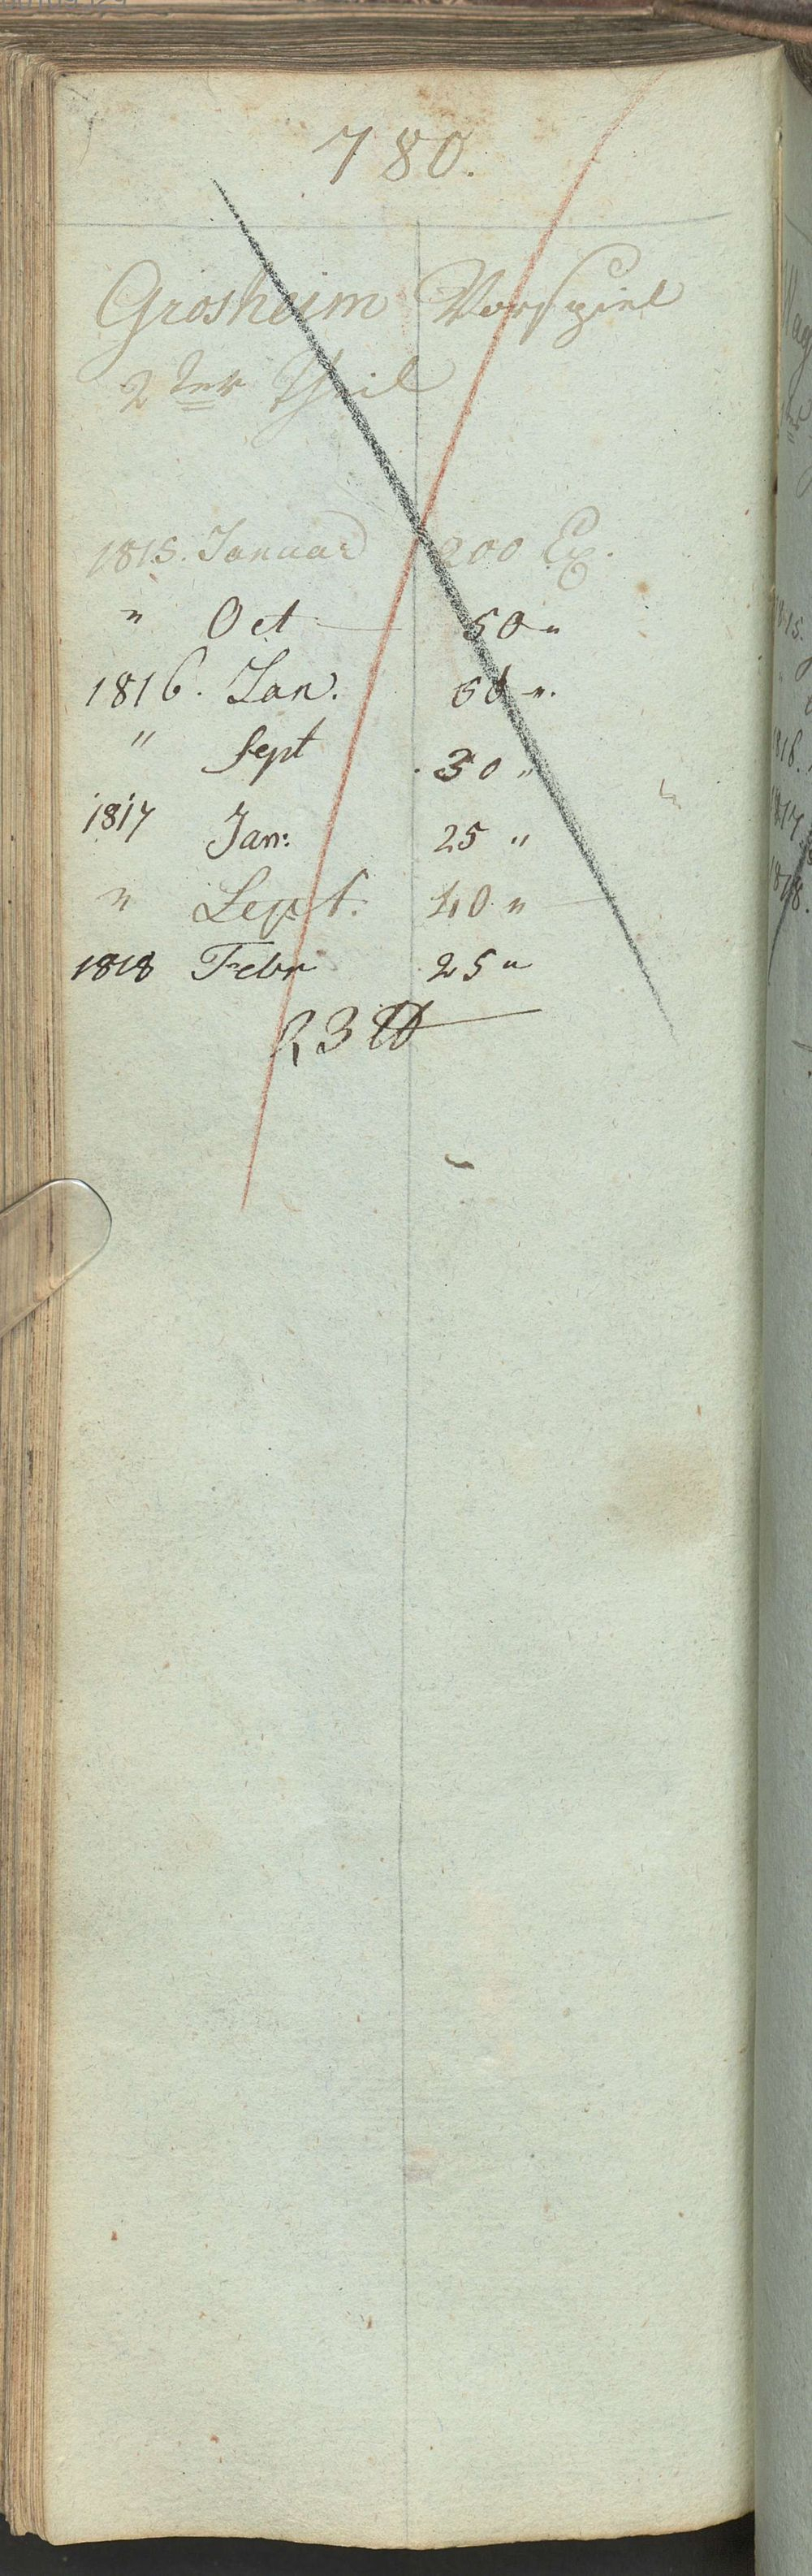 780.
Grosheim Vorspiel
2ter Theil
1815. Januar 200 Ex.
" Oct 50 "
1816. Jan. 50 ".
" Sept 30 "
1817 Jan: 25 "
" Sept. 40 "
1818 Febr 25 "
23 ℔